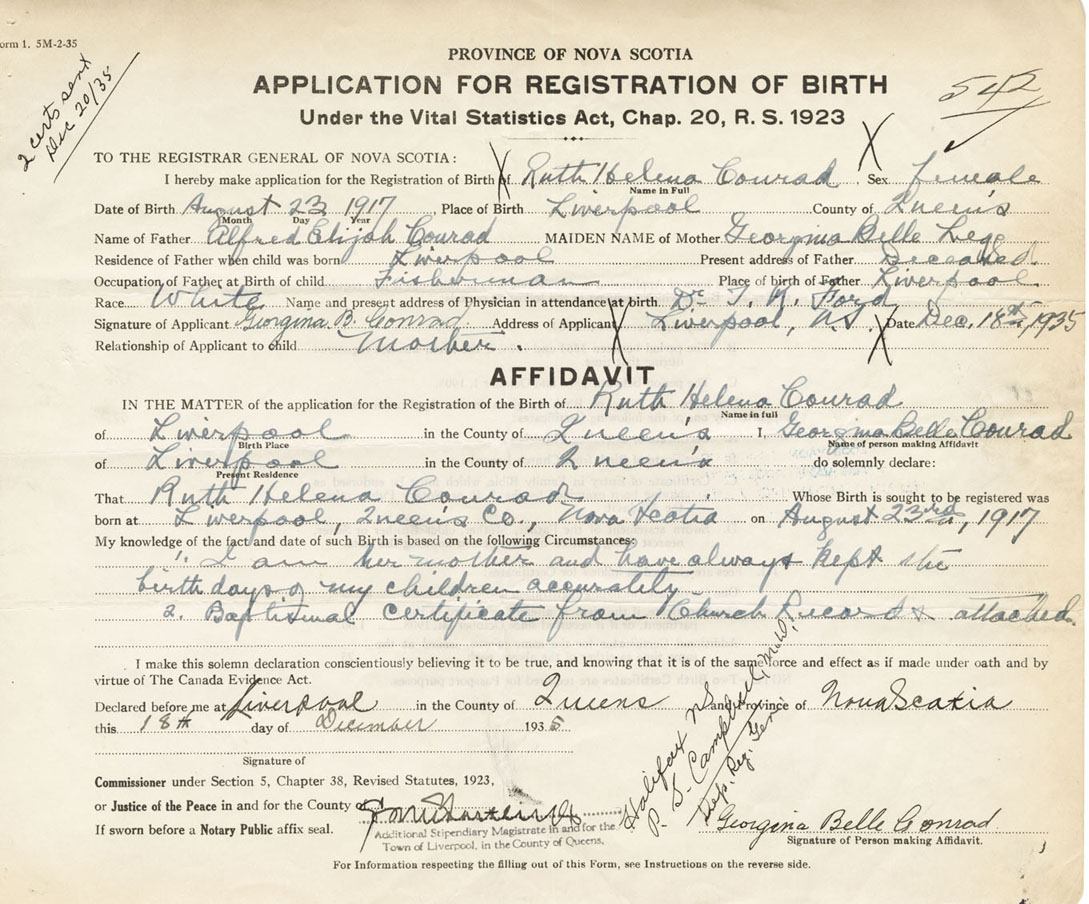 orm 1. 5M-2-35
2 certs sent
Dec 20/35
PROVINCE OF NOVA SCOTIA
APPLICATION FOR REGISTRATION OF BIRTH
542
Under the Vital Statistics Act, Chap. 20, R. S. 1923
TO THE REGISTRAR GENERAL OF NOVA SCOTIA:
I hereby make application for the Registration of Birth of Ruth Helena Conrad Sex female
Name in Full
Date of Birth August 23 1917 Place of Birth Liverpool County of Queen's
Month Day Year
Name of Father Alfred Elijah Conrad MAIDEN NAME of Mother Georgina Belle Lege
Residence of Father when child was born Liverpool Present address of Father Deceased
Occupation of Father at Birth of child Fisherman Place of birth of Father Liverpool
Race White Name and present address of Physician in attendance at birth Dr. Ford
Signature of Applicant Georgina B. Conrad Address of Applicant Liverpool, N.S. Date Dec. 18th, 1935
Relationship of Applicant to child Mother.
AFFIDAVIT
IN THE MATTER of the application for the Registration of the Birth of Ruth Helena Conrad
Name in full
of Liverpool in the County of Queen's I, Georgina Belle Conrad
Birth Place Name of person making Affidavit
of Liverpool in the County of Queen's do solemnly declare:
Present Residence
That Ruth Helena Conrad Whose Birth is sought to be registered was
born at Liverpool, Queen's Co., Nova Scotia on August 23rd, 1917
My knowledge of the fact and date of such Birth is based on the following Circumstances:
1. I am her mother and have always kept the
birthdays of my children accurately
2. Baptismal certificate from Church Records attached.
I make this solemn declaration conscientiously believing it to be true, and knowing that it is of the same force and effect as if made under oath and by
virtue of The Canada Evidence Act.
Declared before me at Liverpool in the County of Queens and Province of Nova Scotia
this 18th day of December 1935
Signature of
Commissioner under Section 5, Chapter 38, Revised Statutes, 1923,
or Justice of the Peace in and for the County of
If sworn before a Notary Public affix seal.
Additional Stipendiary Magistrate in and for the
Town of Liverpool, in the County of Queens,
Halifax NS
P. S. Campbell, M.D.
Dep. Reg. Gen.
Georgina Belle Conrad
Signature of Person making Affidavit.
For Information respecting the filling out of this Form, see Instructions on the reverse side.